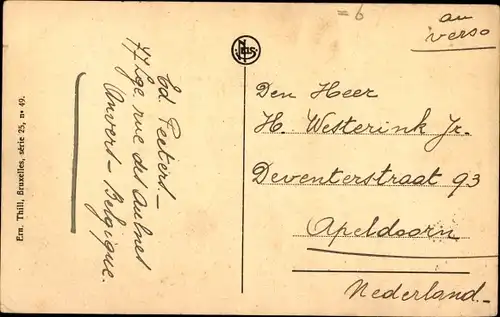 = 6
au
verso
Nels
Ern. Thill, Bruxelles, série 25, n° 49.
Ed. Peeters –
77 Lge rue des Aulnes
Anvers – Belgique.
Den Heer
H. Westerink Jr.
Deventerstraat 93
Apeldoorn
Nederland.